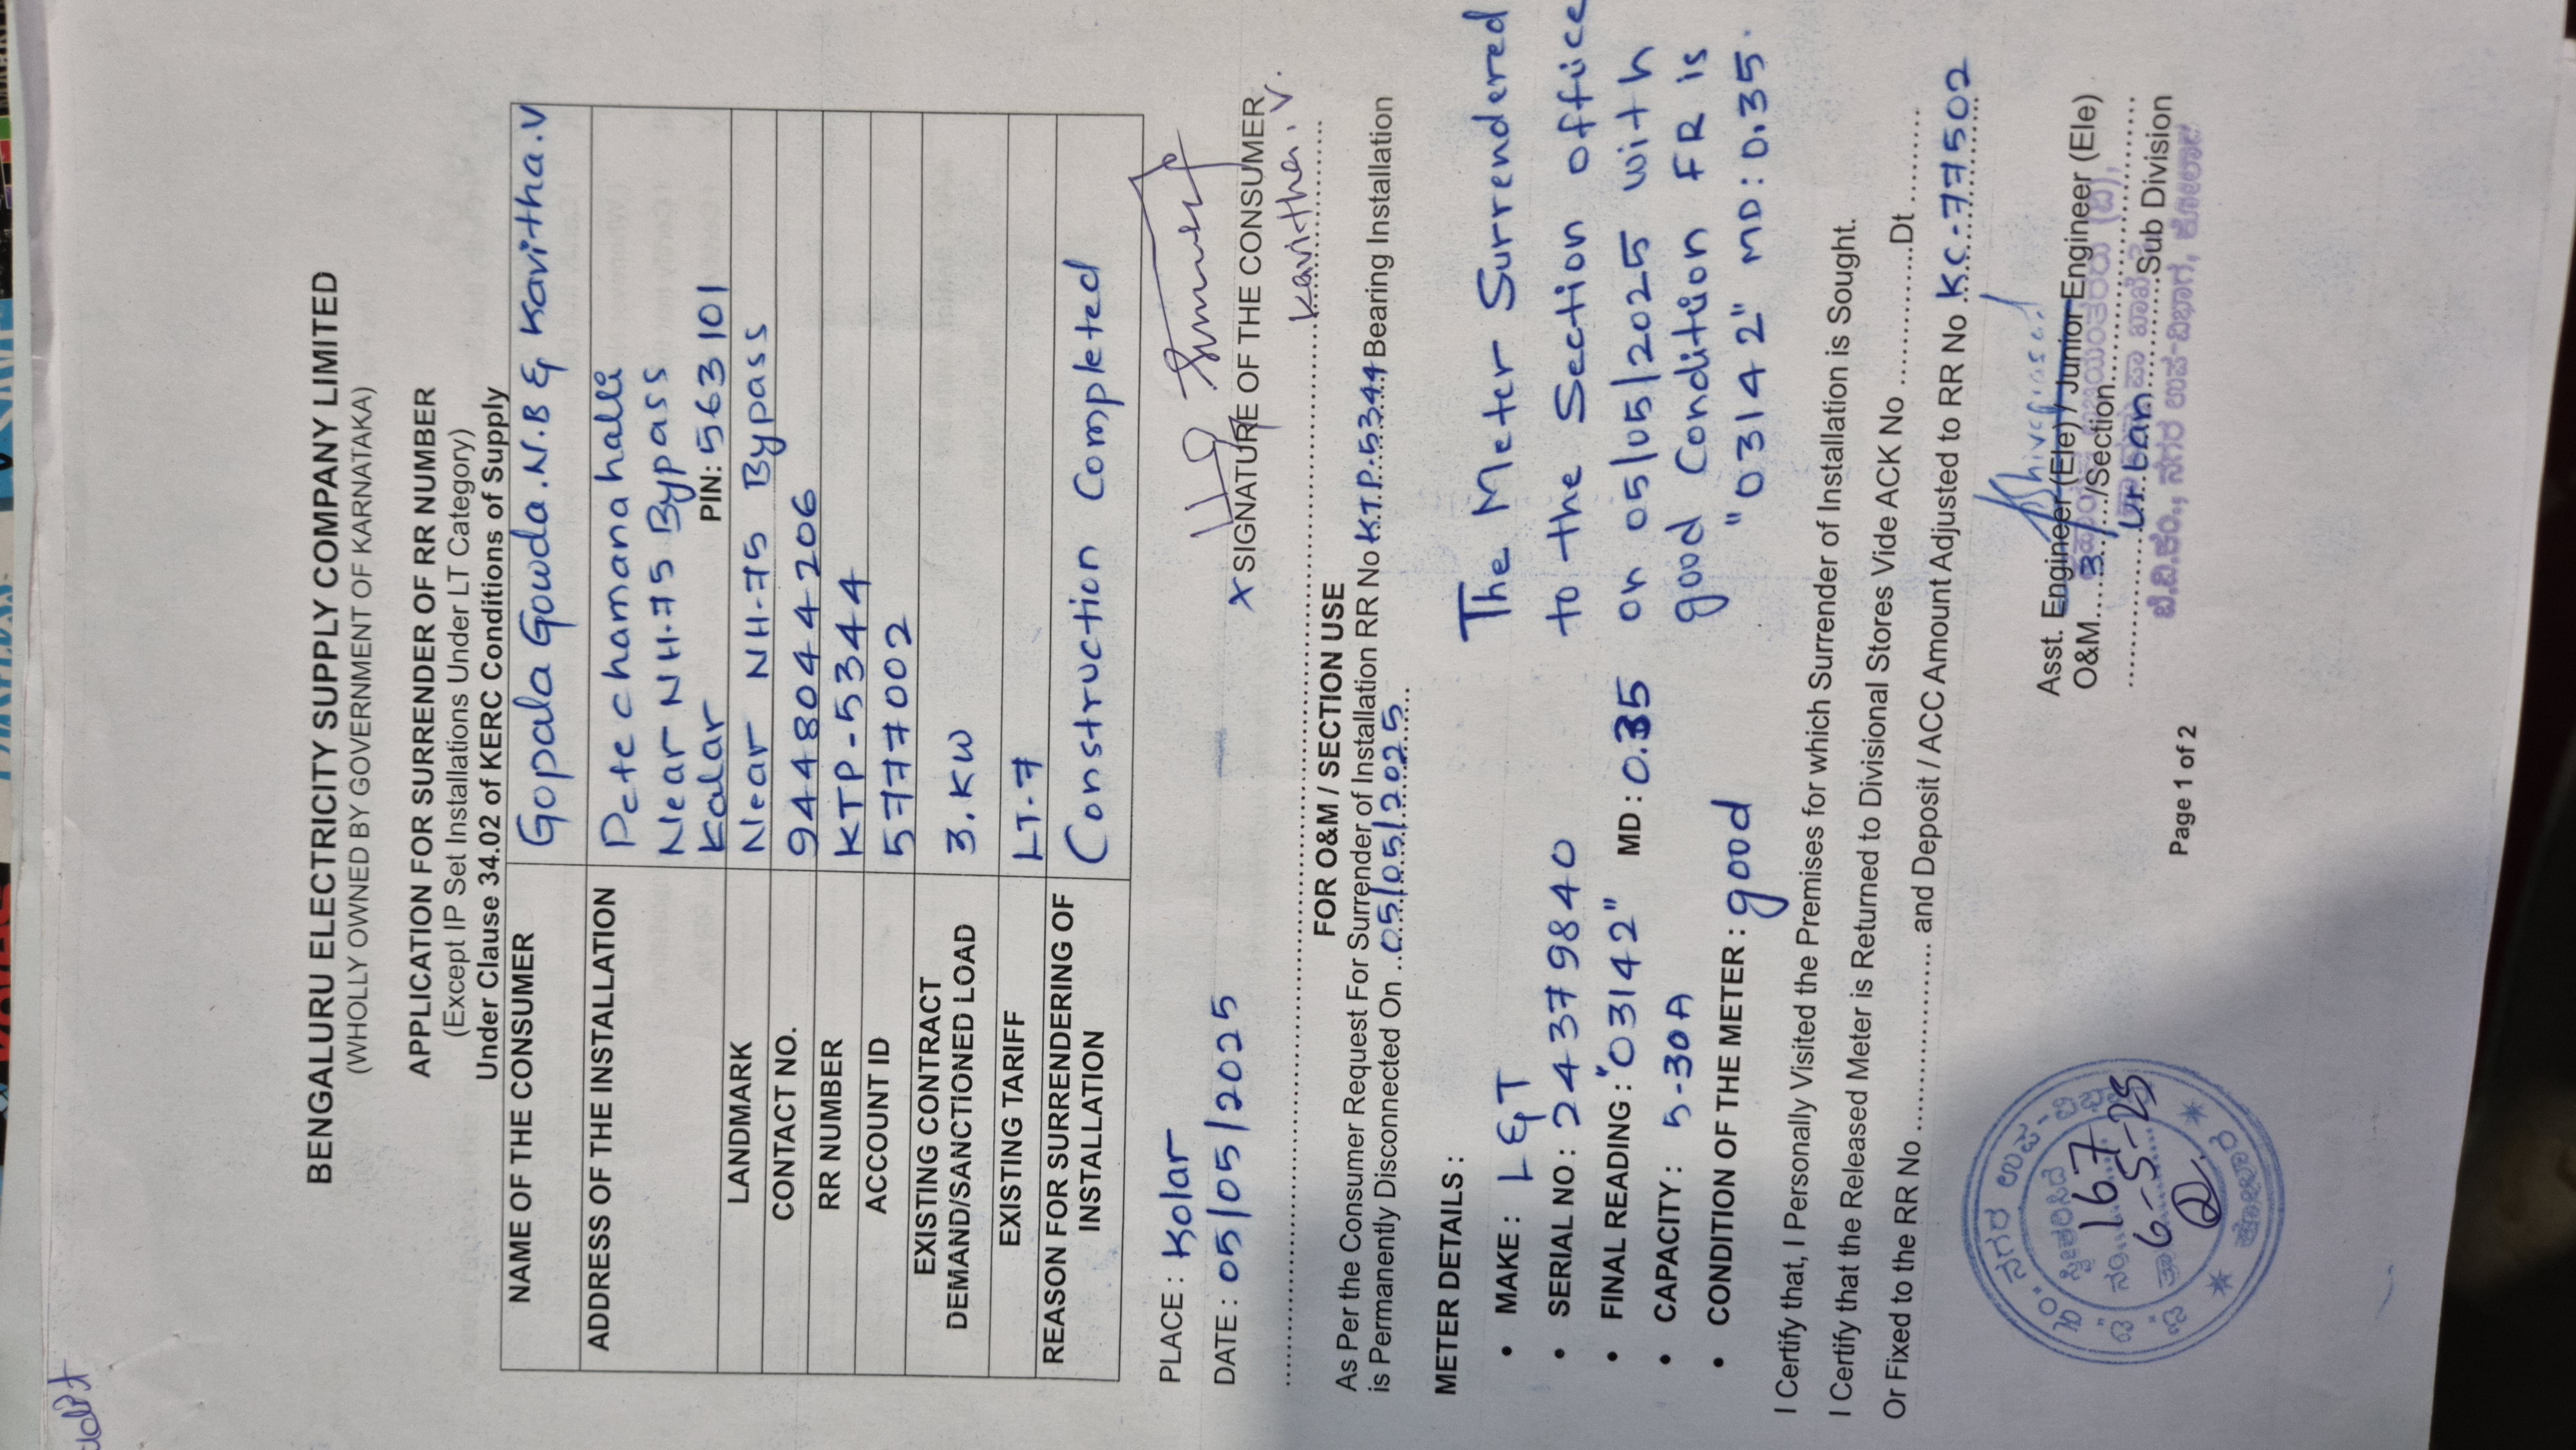 BENGALURU ELECTRICITY SUPPLY COMPANY LIMITED
(WHOLLY OWNED BY GOVERNMENT OF KARNATAKA)
APPLICATION FOR SURRENDER OF RR NUMBER
(Except IP Set Installations Under LT Category)
Under Clause 34.02 of KERC Conditions of Supply
NAME OF THE CONSUMER Gopala Gowda.N.B & Kavitha.V
ADDRESS OF THE INSTALLATION Petechamanahalli
Near NH-75 Bypass
Kolar PIN: 563101
LANDMARK Near NH-75 Bypass
CONTACT NO. 9448044206
RR NUMBER KTP-5344
ACCOUNT ID 5777002
EXISTING CONTRACT DEMAND/SANCTIONED LOAD 3.KW
EXISTING TARIFF LT-7
REASON FOR SURRENDERING OF INSTALLATION Construction Completed
PLACE : Kolar
DATE : 05/05/2025
x SIGNATURE OF THE CONSUMER
Kavitha.V.
FOR O&M / SECTION USE
As Per the Consumer Request For Surrender of Installation RR No KTP-5344 Bearing Installation
is Permanently Disconnected On ..05/05/2025
METER DETAILS :
• MAKE : L&T
• SERIAL NO : 24379840
• FINAL READING : "03142" MD : 0.35
• CAPACITY : 5-30A
• CONDITION OF THE METER : good
The Meter Surrendered
to the Section office
on 05/05/2025 with
good Condition FR is
"03142" MD: 0.35.
I Certify that, I Personally Visited the Premises for which Surrender of Installation is Sought.
I Certify that the Released Meter is Returned to Divisional Stores Vide ACK No ............Dt ..........
Or Fixed to the RR No ................. and Deposit / ACC Amount Adjusted to RR No KC-77502
Asst. Engineer (Ele) / Junior Engineer (Ele)
O&M.....3../Section
Urban Sub Division
ಬೆ.ವಿ.ಕಂ., ನಗರ ಉಪ-ವಿಭಾಗ, ಕೋಲಾರ
ನಗರ ಉಪ-ವಿಭಾಗ
ಸ್ವೀಕರಿಸಿದೆ
ನಂ. 167
ತಾ. 6-5-25
ಕೋಲಾರ
Page 1 of 2